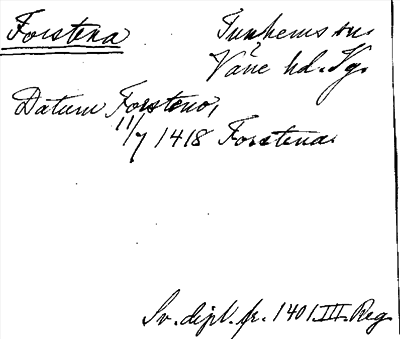 Forstena
Tunhems sn.
Väne hd. Vg.
Datum Forsteno,
11/7 1418 Forstena.
Sv. dipl. fr. 1401.III. Reg.